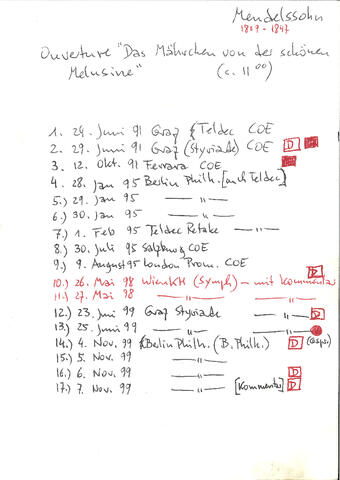 Mendelssohn
1809 - 1847
Ouverture "Das Mährchen von der schönen
Melusine" (c. 11 00)
1. 24. Juni 91 Graz { Teldec COE
2. 29. Juni 91 Graz (Styriade) COE D
3. 12. Okt. 91 Ferrara COE
4. 28. Jan 95 Berlin Philh. [auch Teldec]
5.) 29. Jan 95 —"—
6.) 30. Jan 95 —"—
7.) 1. Feb 95 Teldec Retake —"—
8.) 30. Juli 95 Salzburg COE
9.) 9. August 95 London Prom. COE
10.) 26. Mai 98 Wien KH (Symph) - mit Kommentar D
11.) 27. Mai 98 —"— —"—
12.) 23. Juni 99 Graz Styriade —"— D
13.) 25. Juni 99 —"— —"—
14.) 4. Nov. 99 {Berlin Philh. (B. Philh.) D
15.) 5. Nov. 99 —"—
16.) 6. Nov. 99 —"— D
17.) 7. Nov. 99 —"— [Kommentar] D